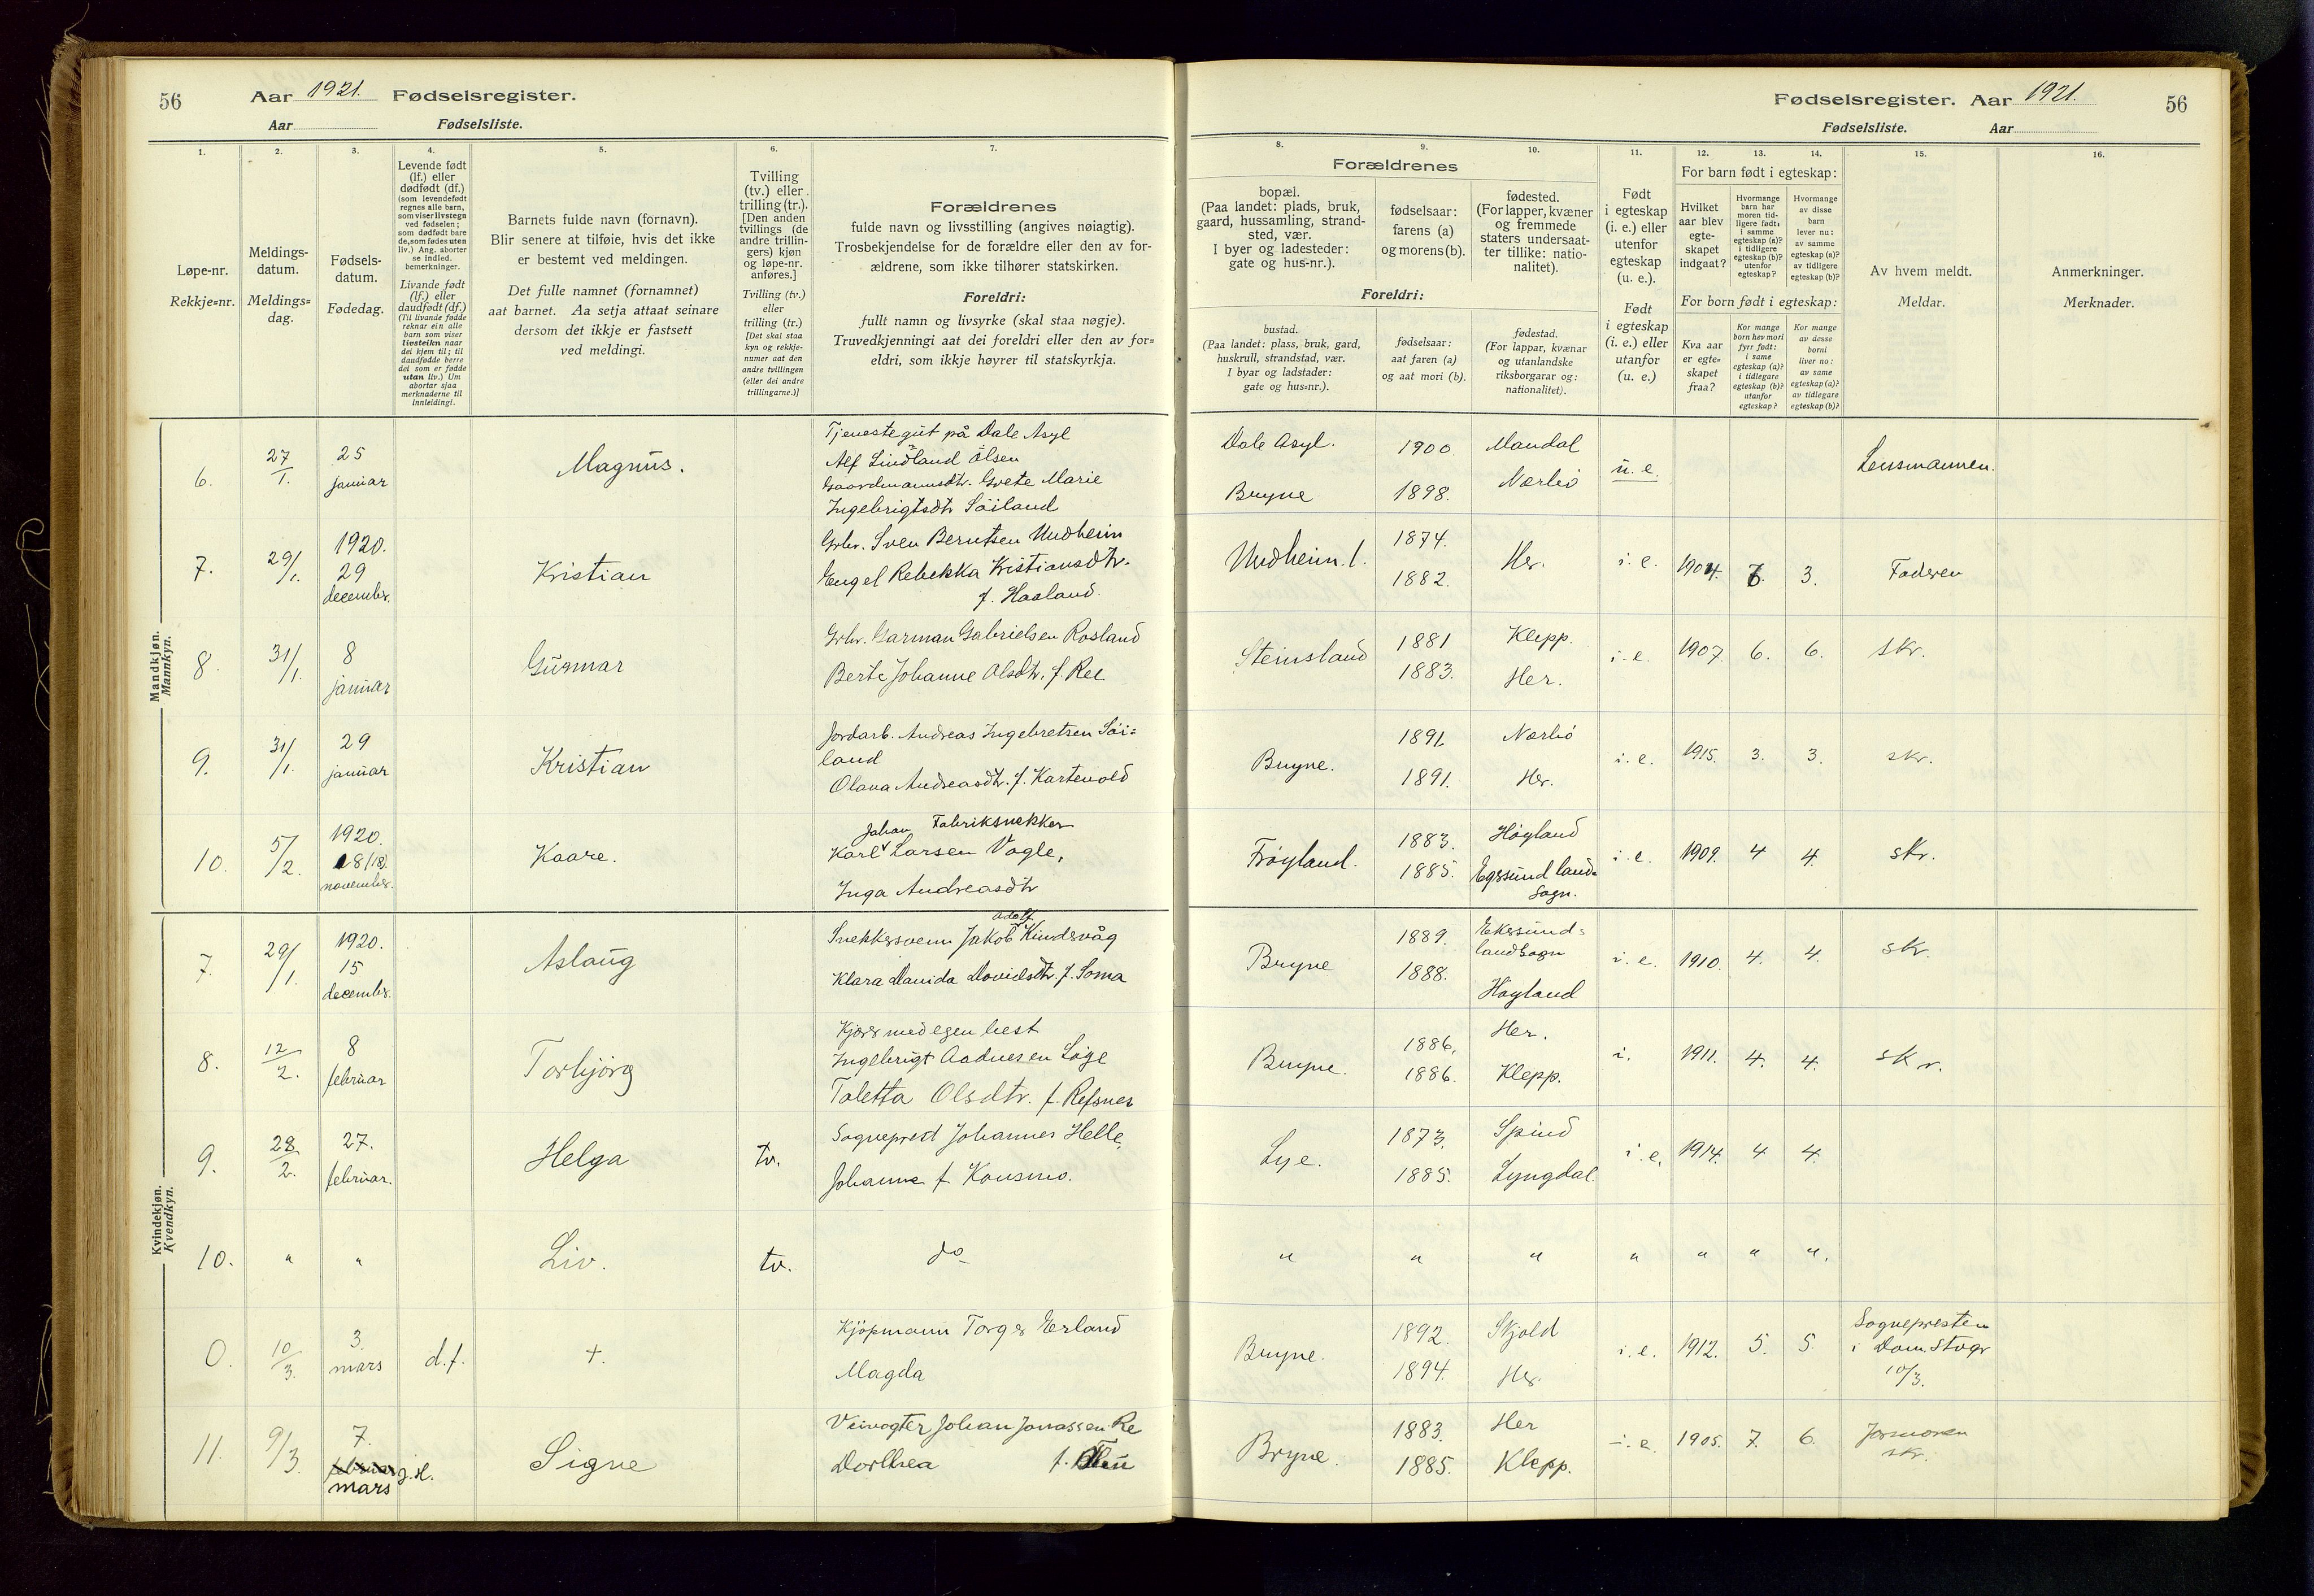 56
Aar 1921. Fødselsregister.
Aar Fødselsliste.
1.
2.
3.
4.
5.
6.
7.
Løpe-nr.
Rekkje=nr.
Meldings-
datum.
Meldings=
dag.
Fødsels-
datum.
Fødedag.
Levende født
(lf.) eller
dødfødt (df.)
(som levendefødt
regnes alle barn,
som viser livstegn
ved fødselen;
som dødfødt bare
de, som fødes uten
liv.) Ang. aborter
se indled.
bemerkninger.
Livande født
(lf.) eller
daudfødt (df.)
(Til livande fødde
reknar ein alle
barn som viser
livsteikn naar
dei kjem til; til
daudfødde berre
dei som er fødde
utan liv.) Um
abortar sjaa
merknaderne til
innleidingi.
Barnets fulde navn (fornavn).
Blir senere at tilføie, hvis det ikke
er bestemt ved meldingen.
Det fulle namnet (fornamnet)
aat barnet. Aa setja attaat seinare
dersom det ikkje er fastsett
ved meldingi.
Tvilling
(tv.) eller
trilling (tr.).
[Den anden
tvillings (de
andre trillin-
gers) kjøn
og løpe-nr.
anføres.]
Tvilling (tv.)
eller
trilling (tr.)
[Det skal staa
kyn og rekkje-
numer aat den
andre tvillingen
(eller dei andre
trillingarne.)]
Forældrenes
fulde navn og livsstilling (angives nøiagtig).
Trosbekjendelse for de forældre eller den av for-
ældrene, som ikke tilhører statskirken.
Foreldri:
fullt namn og livsyrke (skal staa nøgje).
Truvedkjenningi aat dei foreldri eller den av for=
eldri, som ikkje høyrer til statskyrkja.
Mandkjøn.
Mannkyn.
6. 27/1. 25 januar Magnus.
Tjenestegut på Dale Asyl
Alf Lindland Olsen
Gaardmannsdtr. Grete Marie
Ingebrigtsdtr Söiland
7. 29/1. 1920. 29 december. Kristian
Grbr. Sven Berntsen Undheim
Engel Rebekka Kristiansdtr.
f. Haaland.
8. 31/1. 8 januar Gunnar
Grbr. Garman Gabrielsen Rosland
Berte Johanne Olsdtr. f. Ree
9. 31/1. 29 januar Kristian
Jordarb. Andreas Ingebretsen Söi=
land
Olava Andreasdtr. f. Kartevold
10. 5/2. 1920. 18 (18). november. Kaare.
Johan Fabriksnekker
Karl Larsen Vagle,
Inga Andreasdtr
Kvindekjøn.
Kvendkyn.
7. 29/1. 1920. 15 december. Aslaug
Adolf
Snekkersvenn Jakob Kindervåg
Klara Davida Davidsdtr. f. Soma
8. 12/2. 8 februar Torbjörg
Kjörer med egen hest
Ingebrigt Aadnesen Löge
Taletta Olsdtr. f. Refsnes
9. 28/2. 27. februar. Helga tv.
Sogneprest Johannes Helle,
Johanne f. Konsmo.
10. " " Liv. tv. do
0. 10/3. 3. mars d.f. +.
Kjöpmann Torger Eerland
Magda
11. 9/3. 7. februar mars Signe
Veivogter Johan Jonassen Re
Dorthea f.
Fødselsregister. Aar 1921.
56
Fødselsliste. Aar
8.
9.
10.
11.
12.
13.
14.
15.
16.
Forældrenes
bopæl.
(Paa landet: plads, bruk,
gaard, hussamling, strand-
sted, vær.
I byer og ladesteder:
gate og hus-nr.).
fødselsaar:
farens (a)
og morens (b).
fødested.
(For lapper, kvæner
og fremmede
staters undersaat-
ter tillike: natio-
nalitet).
Foreldri:
bustad.
(Paa landet: plass, bruk, gard,
huskrull, strandstad, vær.
I byar og ladstader:
gate og hus=nr.).
fødselsaar:
aat faren (a)
og aat mori (b).
fødestad.
(For lappar, kvænar
og utanlandske
riksborgarar og:
nationalitet).
Født
i egteskap
(i. e.) eller
utenfor
egteskap
(u. e.).
Født
i egteskap
(i. e.) eller
utanfor
(u. e.)
For barn født i egteskap:
Hvilket
aar blev
egte-
skapet
indgaat?
Hvormange
barn har
moren tid-
ligere født:
i samme
egteskap (a)?
i tidligere
egteskap (b)?
utenfor
egteskap?
Hvormange
av disse
barn
lever nu:
av samme
egteskap (a)?
av tidligere
egteskap (b)?
For born født i egteskap:
Kva aar
er egte-
skapet
fraa?
Kor mange
born hev mori
fyrr født:
i same
egteskap (a)?
i tidlegare
egteskap (b)?
utanfor
egteskap?
Kor mange
av desse
borni
liver no:
av same
egteskap (a)?
av tidlegare
egteskap (b)?
Av hvem meldt.
Meldar.
Anmerkninger.
Merknader.
Dale Asyl. 1900. Mandal u. e. Lensmannen.
Bryne 1898. Nærbö
Undheim. l. 1874. 1882. Her. i. e. 1904. 3. Faderen
Steinsland 1881 Klepp. i. e. 1907. 6. 6. skr.
1883. Her.
Bryne. 1891 Nærbö i. e. 1915. 3. 3. skr.
1891. Her.
Fröyland. 1883. Höyland i. e. 1909. 4 4. skr.
1885. Egersund land=
sogn.
Bryne 1889. Ekersund=
landsogn i. e. 1910. 4. 4. skr.
1888. Höyland
Bryne. 1886. Her. i. 1911. 4. 4. skr.
1886. Klepp.
Lye. 1873. Spind i. e. 1914. 4 4.
1885. Lyngdal
" " " " " " ".
Bryne. 1892. Skjold i. e. 1912. 5. 5 Sognepresten
i Dom Stvgr
10/3.
1894. Her.
Bryne. 1883. Her i. e. 1905. 7. 6. Jormoren
skr.
1885. Klepp.